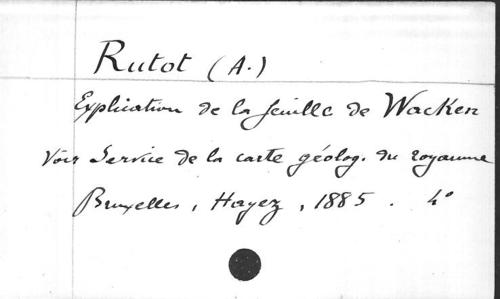 Rutot (A.)
Explication de la feuille de Wacken
Voir Service de la carte géolog. du royaume
Bruxelles, Hayez, 1885. 4°